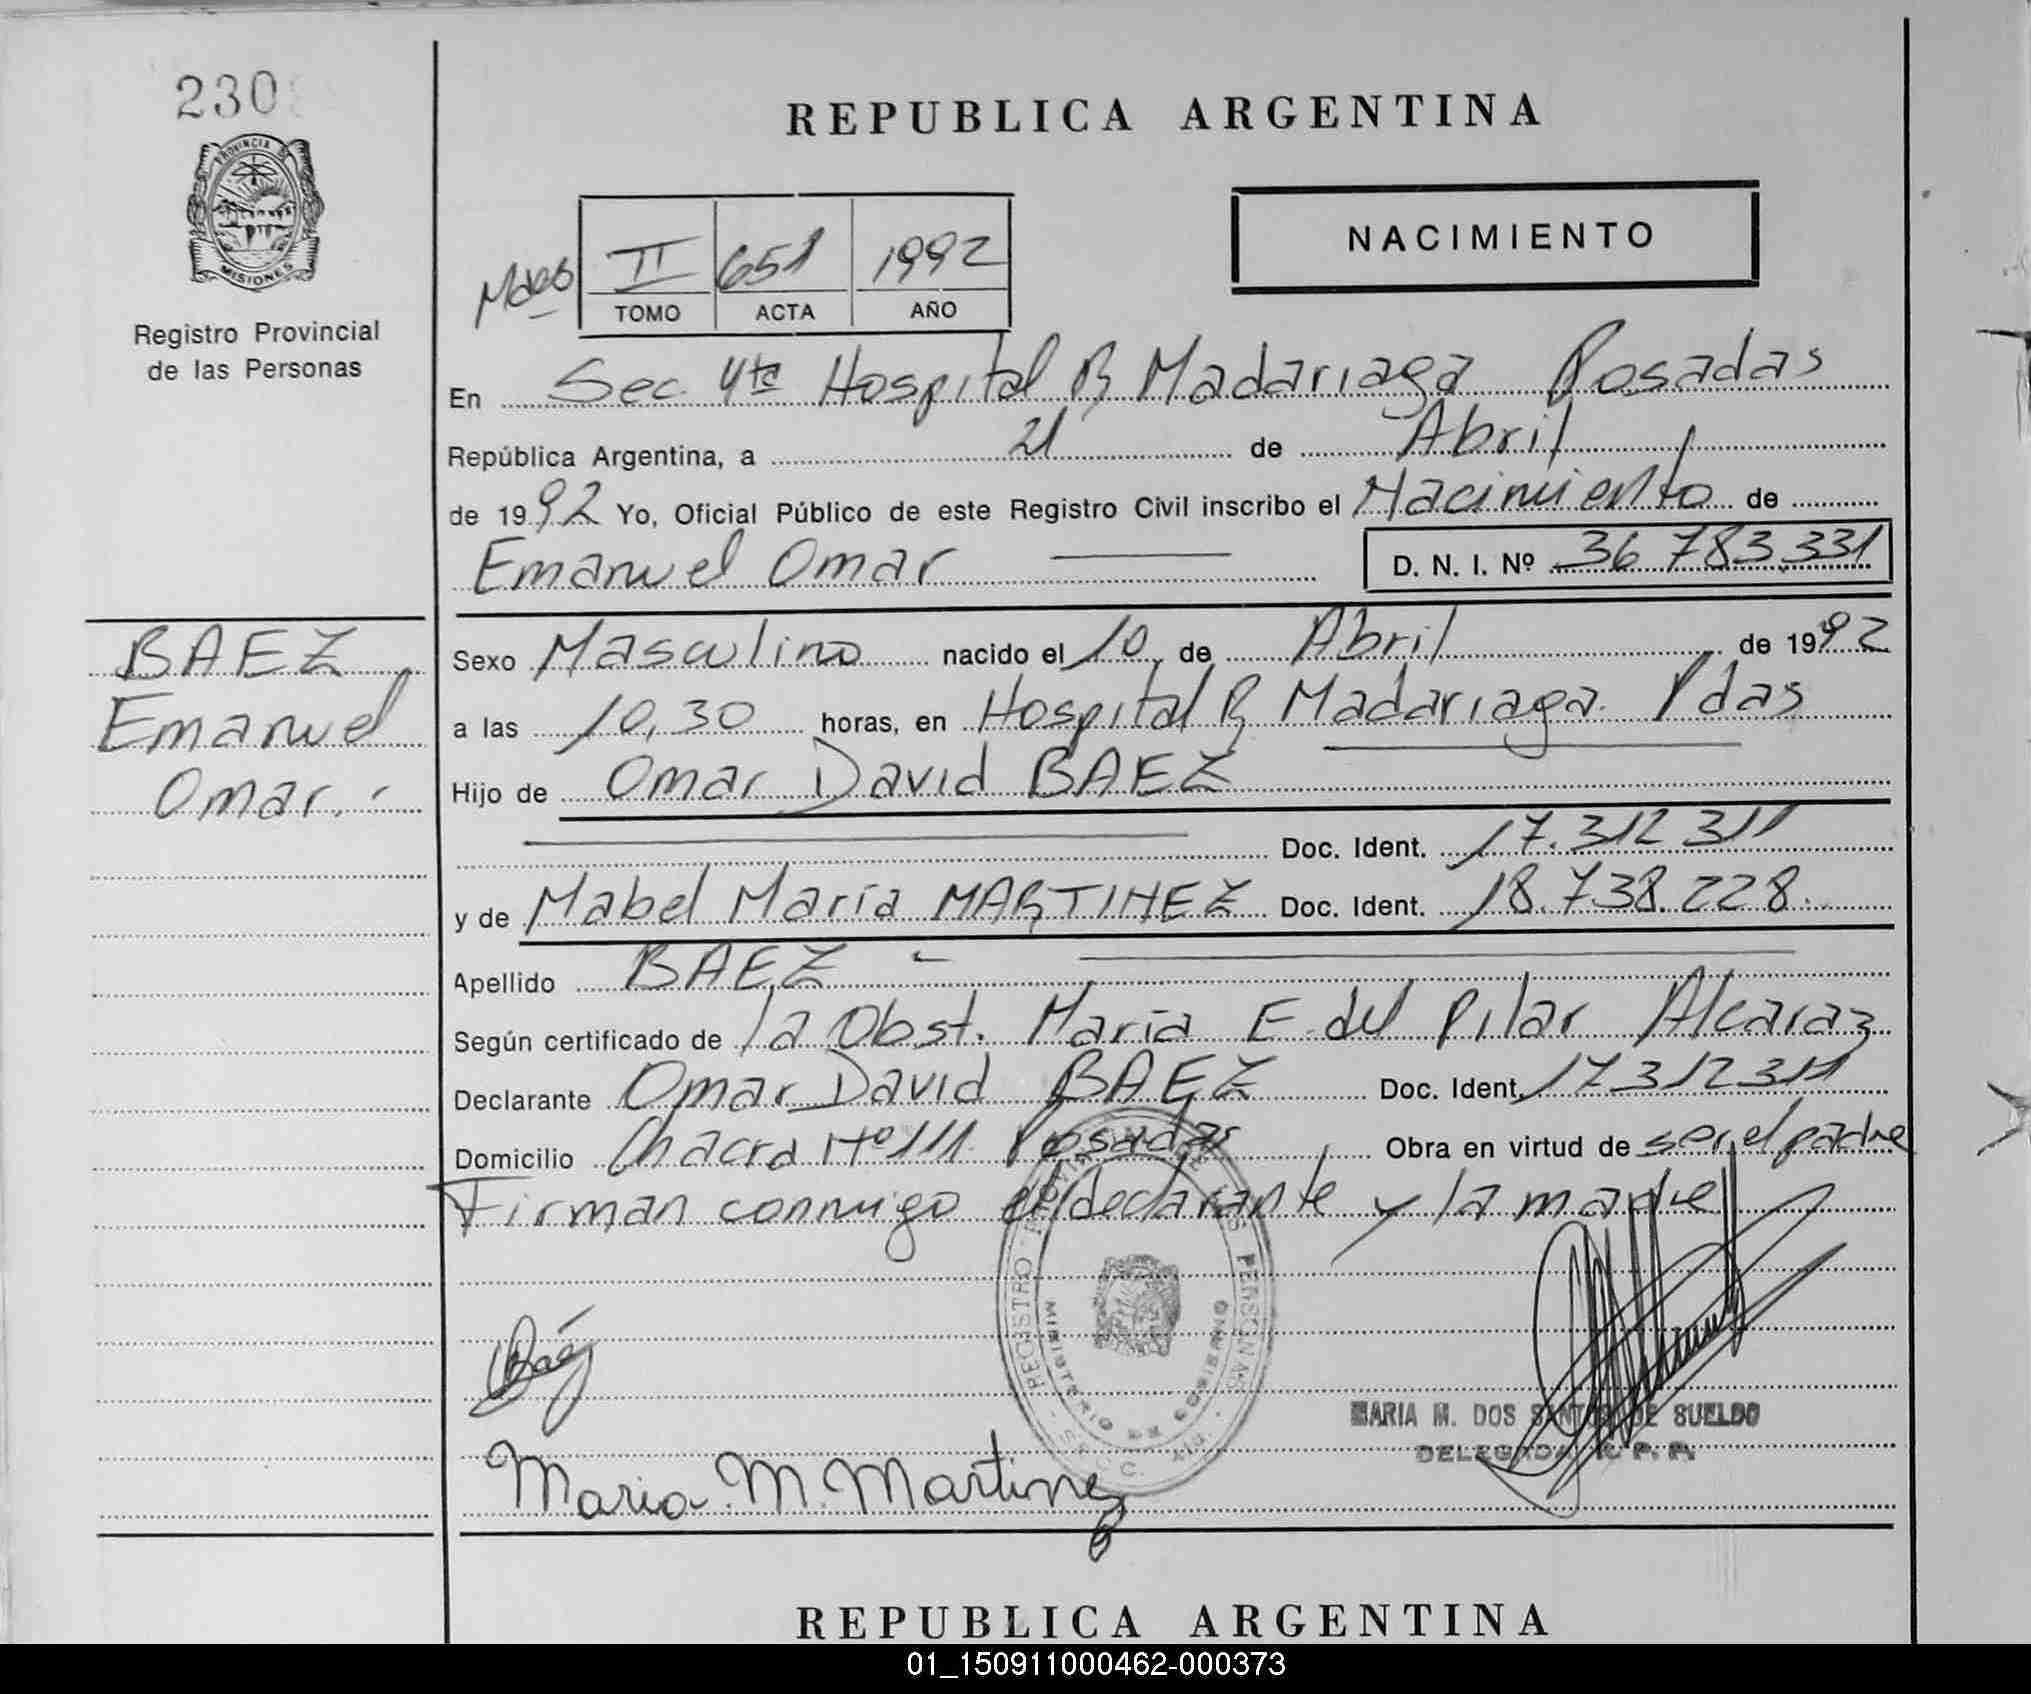 230
PROVINCIA DE
MISIONES
Registro Provincial
de las Personas
BAEZ
Emanuel
Omar.-
REPUBLICA ARGENTINA
NACIMIENTO
II 651 1992
TOMO ACTA AÑO
En Sec. 4ta Hospital R Madariaga Posadas
República Argentina, a 21 de Abril
de 1992 Yo, Oficial Público de este Registro Civil inscribo el Nacimiento de
Emanuel Omar D. N. I. Nº 36 783.331
Sexo Masculino nacido el 10 de Abril de 1992
a las 10,30 horas, en Hospital R Madariaga. Pdas
Hijo de Omar David BAEZ
Doc. Ident. 17.312 311
y de Mabel María MARTINEZ Doc. Ident. 18.738.228.
Apellido BAEZ -
Según certificado de la Obst. María E. del Pilar Alcaraz
Declarante Omar David BAEZ Doc. Ident. 17312311
Domicilio Chacra Nº 111. Posadas Obra en virtud de ser el padre
Firman conmigo el declarante y la madre
REGISTRO PERSONAS
MINISTERIO DE GOBIERNO
Baez
MARIA M. DOS SANTOS DE SUELDO
DELEGADA R. P. P.
Maria M. Martinez
REPUBLICA ARGENTINA
01_150911000462-000373